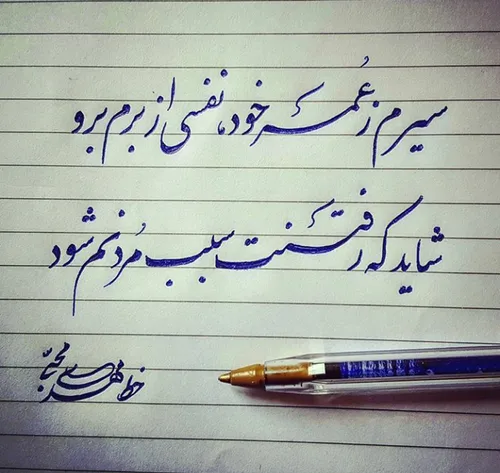 سیرم ز عُمر خود، نفسی از برم برو
شاید که رفتنت سبب مُردنم شود
خط مهدی محبی